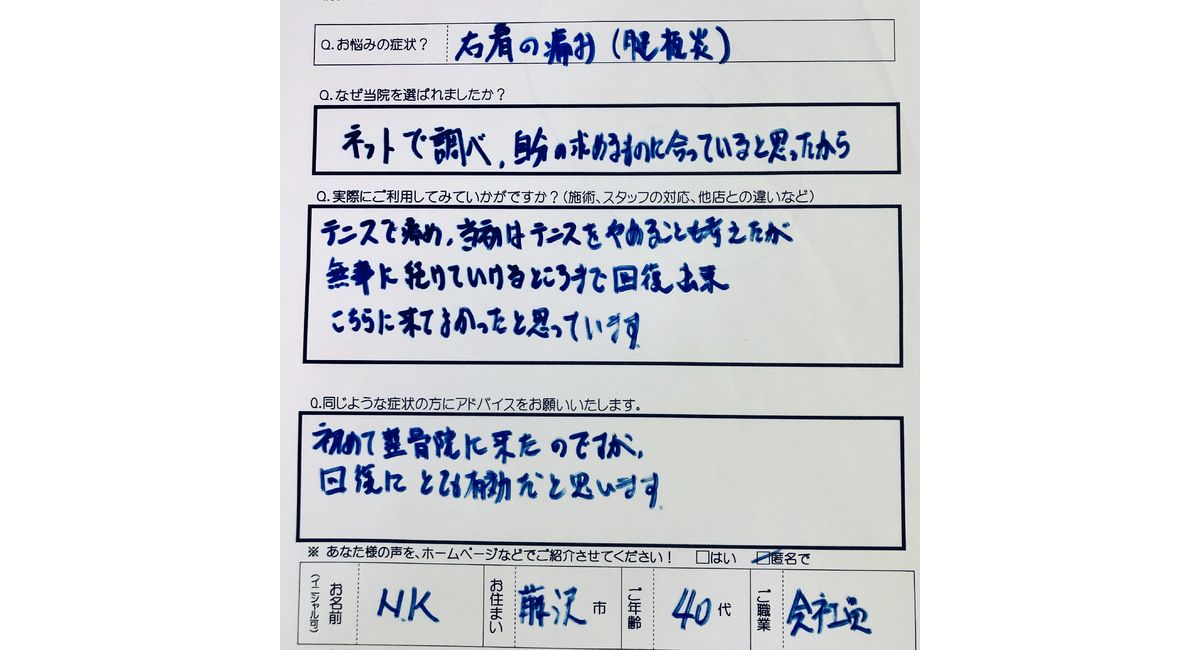 Q.お悩みの症状？ 右肩の痛み(腱板炎)
Q.なぜ当院を選ばれましたか？
ネットで調べ、自分の求めるものに合っていると思ったから
Q.実際にご利用してみていかがですか？(施術、スタッフの対応、他店との違いなど)
テニスで痛め、当初はテニスをやめることも考えたが
無事に続けていけるところまで回復出来
こちらに来てよかったと思っています
Q.同じような症状の方にアドバイスをお願いいたします。
初めて整骨院に来たのですが、
回復にとても有効だと思います
※ あなた様の声を、ホームページなどでご紹介させてください！ □はい ☑匿名で
お名前(イニシャル可) N.K お住まい 藤沢市 ご年齢 40代 ご職業 会社員